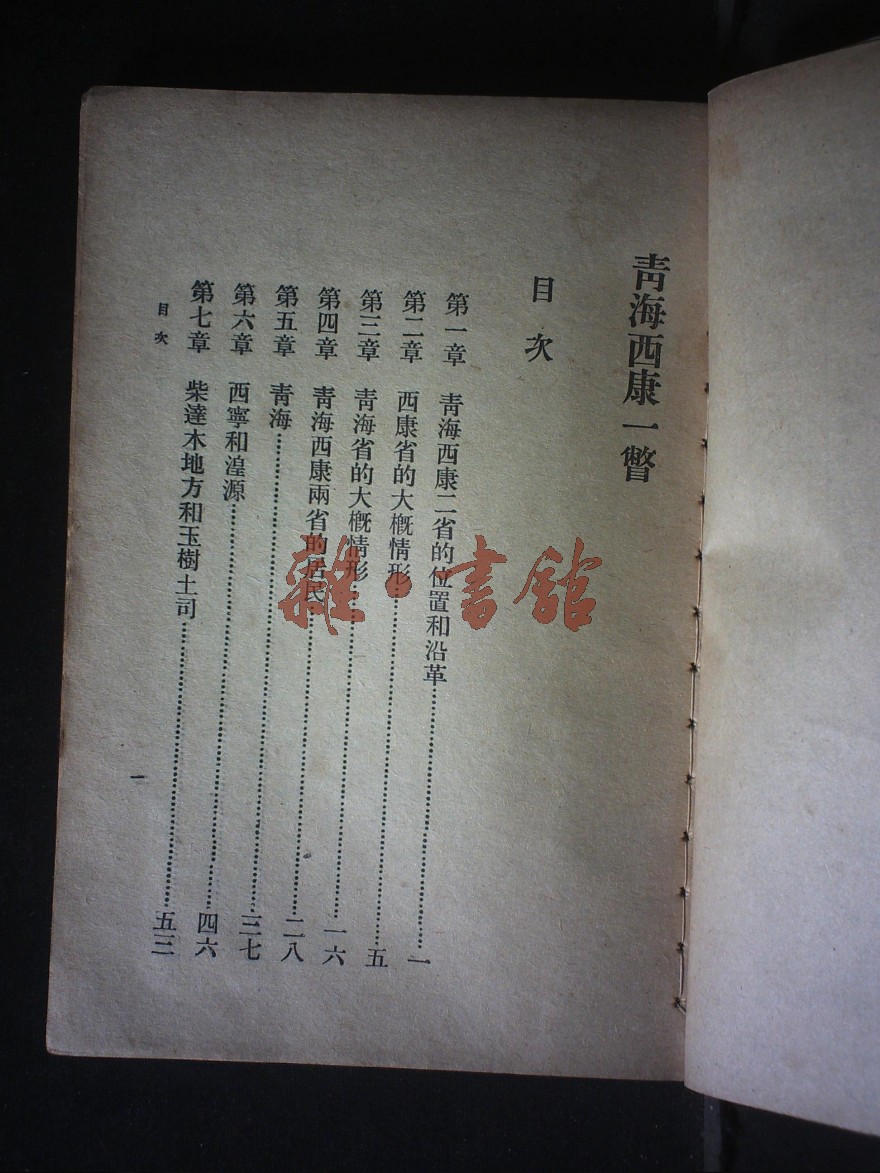 青海西康一瞥
目次
第一章 青海西康二省的位置和沿革……一
第二章 西康省的大概情形……五
第三章 青海省的大概情形……一六
第四章 青海西康兩省的居民……二八
第五章 青海……三七
第六章 西寧和湟源……四六
第七章 柴達木地方和玉樹土司……五三
目次
一
雜·書館